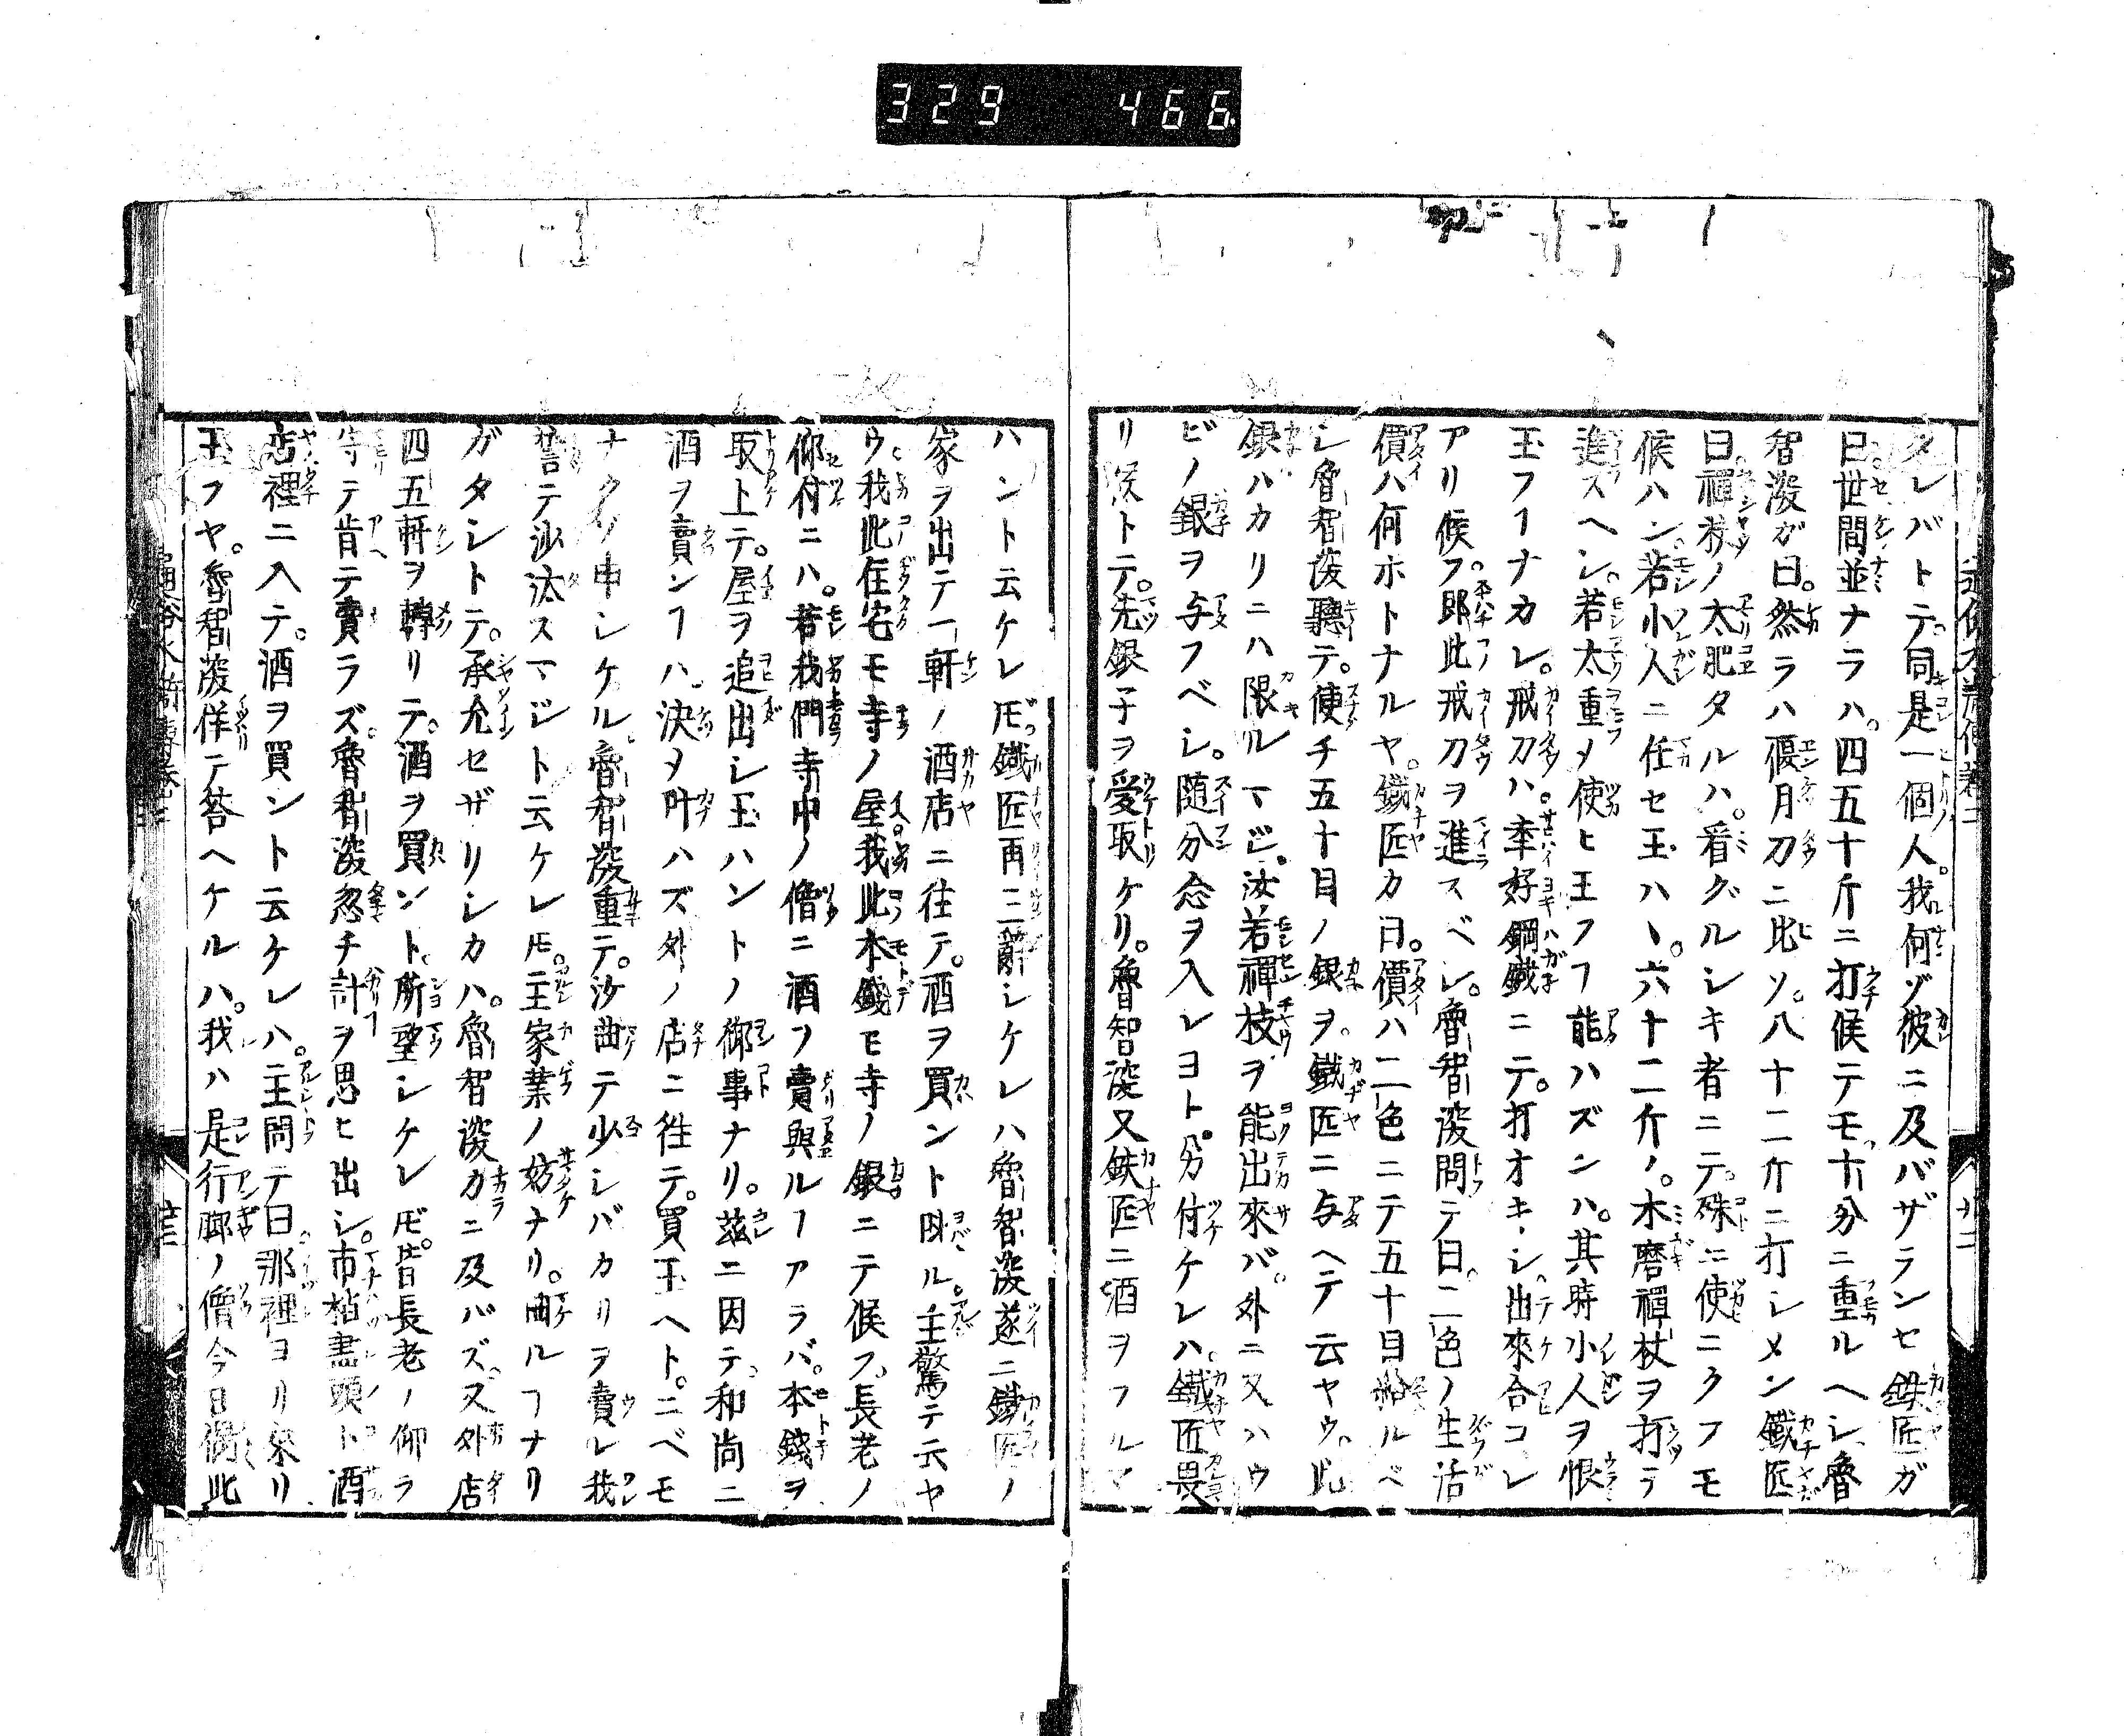 329 466
タレバトテ。同是一個人。我何ゾ彼ニ及バザランヤ 鉄匠ガ
曰。世間並ナラハ。四五十斤ニ打候テモ。十分ニ重ルヘシ。魯
智深ガ曰。然ラハ偃月刀ニ比ソ。八十二斤ニ打シメン 鐵匠
曰。禪杖ノ太肥タルハ。看グルシキ者ニテ。殊ニ使ニクフモ
候ハン。若小人ニ任セ玉ハヽ。六十二斤ノ。水磨禪杖ヲ打テ
進スヘシ。若太重メ使ヒ玉フフ能ハズンハ。其時小人ヲ恨
玉フヿナカレ。戒刀ハ。幸好鋼鐵ニテ。打オキシ。出來合コレ
アリ候フ。即此戒刀ヲ進スベシ。魯智深問テ曰。二色ノ生活
價ハ何ホトナルヤ。鐵匠カ曰。價ハ二色ニテ五十目賜ルベ
シ 魯智深聽テ。便チ五十目ノ銀ヲ。鐵匠ニ与ヘテ云ヤウ。此
銀ハカリニハ限ルマジ。汝若禪杖ヲ能出來サバ。外ニ又ハウ
ビノ銀ヲ与フベシ。随分念ヲ入レヨト。分付ケレハ。鐵匠畏
リ候トテ。先銀子ヲ受取ケリ。魯智深又鉄匠ニ酒ヲフルマ
ハント云ケレ𪜈。鐵匠再三辭シケレハ 魯智深遂ニ鐵匠ノ
家ヲ出テ 一軒ノ酒店ニ往テ。酒ヲ買ント呼ル。主驚テ云ヤ
ウ 我此在宅モ寺ノ屋 我此本錢モ寺ノ銀ニテ候フ。長老ノ
仰付ニハ。若我們寺中ノ僧ニ酒フ賣與ルヿアラバ。本錢ヲ
取上テ。屋ヲ追出シ玉ハントノ御事ナリ。茲ニ因テ。和尚ニ
酒ヲ賣ンヿハ。決メ叶ハズ 外ノ店ニ徃テ。買玉ヘト。ニベモ
ナクゾ申シケル。魯智深重テ。沙曲テ少シバカリヲ賣レ 我
誓テ沙汰スマジト云ケレ𪜈。主家業ノ妨ナリ。曲ルヿナリ
ガタシトテ。承允セザリシカハ。魯智深カニ及バズ。又外店
四五軒ヲ轉リテ。酒ヲ買ント。所望シケレ𪜈。皆長老ノ仰ラ
守テ肯テ賣ラズ。魯智深忽チ計ヲ思ヒ出シ。市梢盡頭ト酒
店裡ニ入テ。酒ヲ買ント云ケレハ。主問テ曰 那裡ヨリ來リ
玉フヤ。魯智深佯テ荅ヘケルハ。我ハ是行脚ノ僧 今日偶此